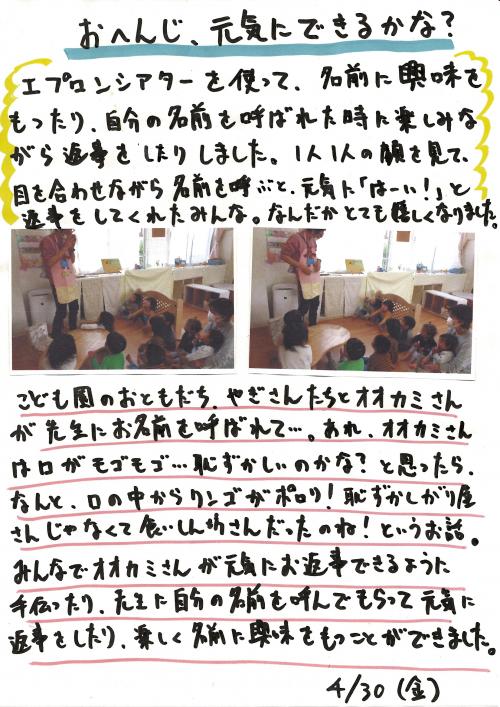 おへんじ、元気にできるかな？
エプロンシアターを使って、名前に興味を
もったり、自分の名前を呼ばれた時に楽しみな
がら返事をしたりしました。1人1人の顔を見て、
目を合わせながら名前を呼ぶと、元気に「はーい！」と
返事をしてくれたみんな。なんだかとても嬉しくなりました。
こども園のおともだち、やぎさんたちとオオカミさん
が先生にお名前を呼ばれて…。あれ、オオカミさん
は口がモゴモゴ…恥ずかしいのかな？と思ったら、
なんと、口の中からリンゴがポロリ！恥ずかしがり屋
さんじゃなくて食いしん坊さんだったのね！というお話。
みんなでオオカミさんが元気にお返事できるように
手伝ったり、先生に自分の名前を呼んでもらって元気に
返事をしたり、楽しく名前に興味をもつことができました。
4/30（金）